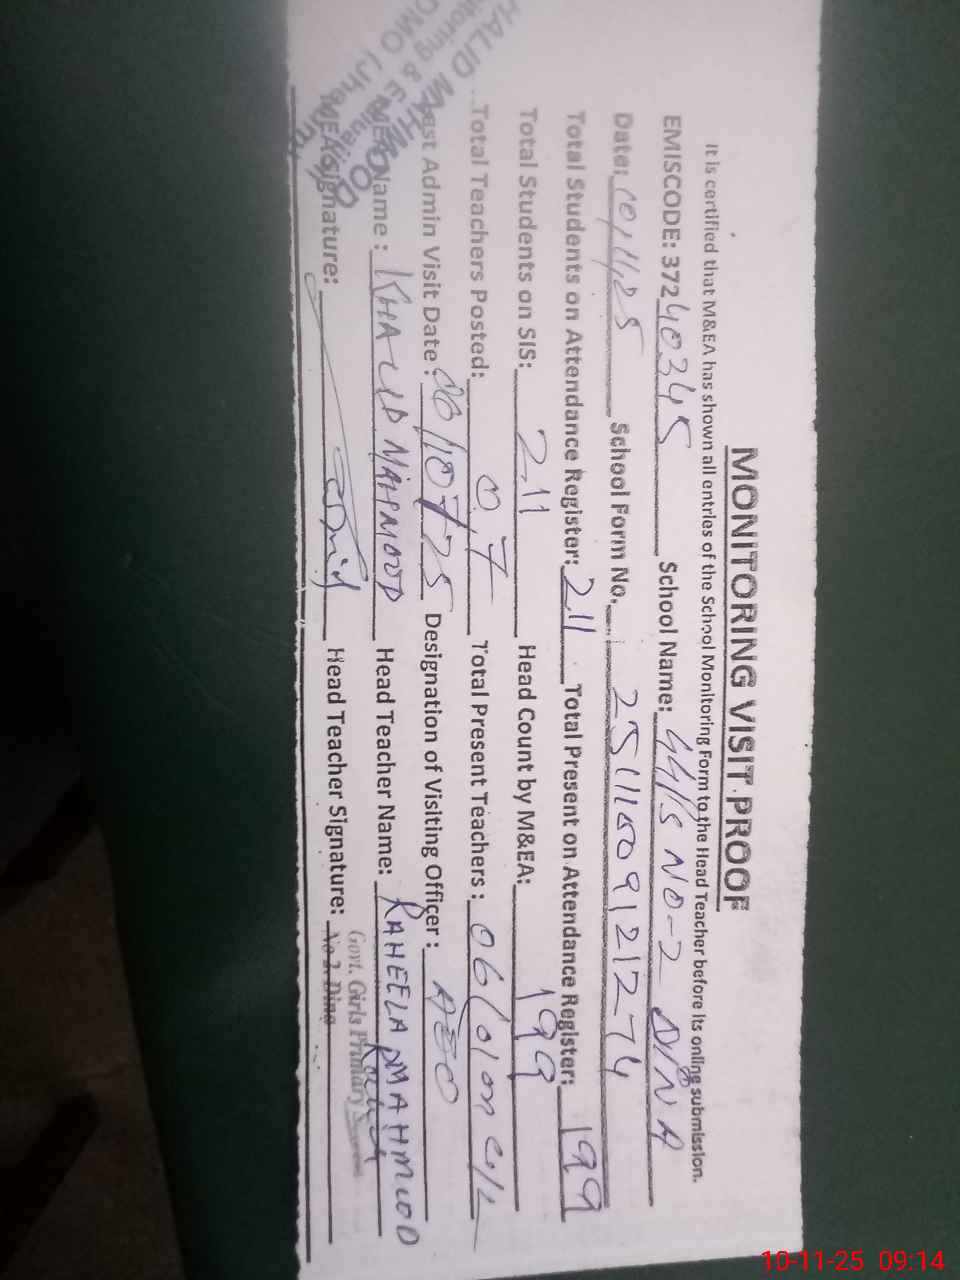 MONITORING VISIT PROOF
It is certified that M&EA has shown all entries of the School Monitoring Form to the Head Teacher before its online submission.
EMISCODE: 37240345 School Name: GGPS NO-2 DINA
Date: 10/11/25 School Form No. 25111009121274
Total Students on Attendance Register: 211 Total Present on Attendance Register: 199
Total Students on SIS: 211 Head Count by M&EA: 199
Total Teachers Posted: 07 Total Present Teachers: 06 (01 on C/L
Last Admin Visit Date: 08/10/25 Designation of Visiting Officer: AEO
MEA Name: KHALID MAHMOOD Head Teacher Name: RAHEELA MAHMOOD
MEA Signature: Head Teacher Signature:
KHALID MAHMOOD
Monitoring & Evaluation
DMO (Jhelum)
Govt. Girls Primary School
No 2. Dina
10-11-25 09:14